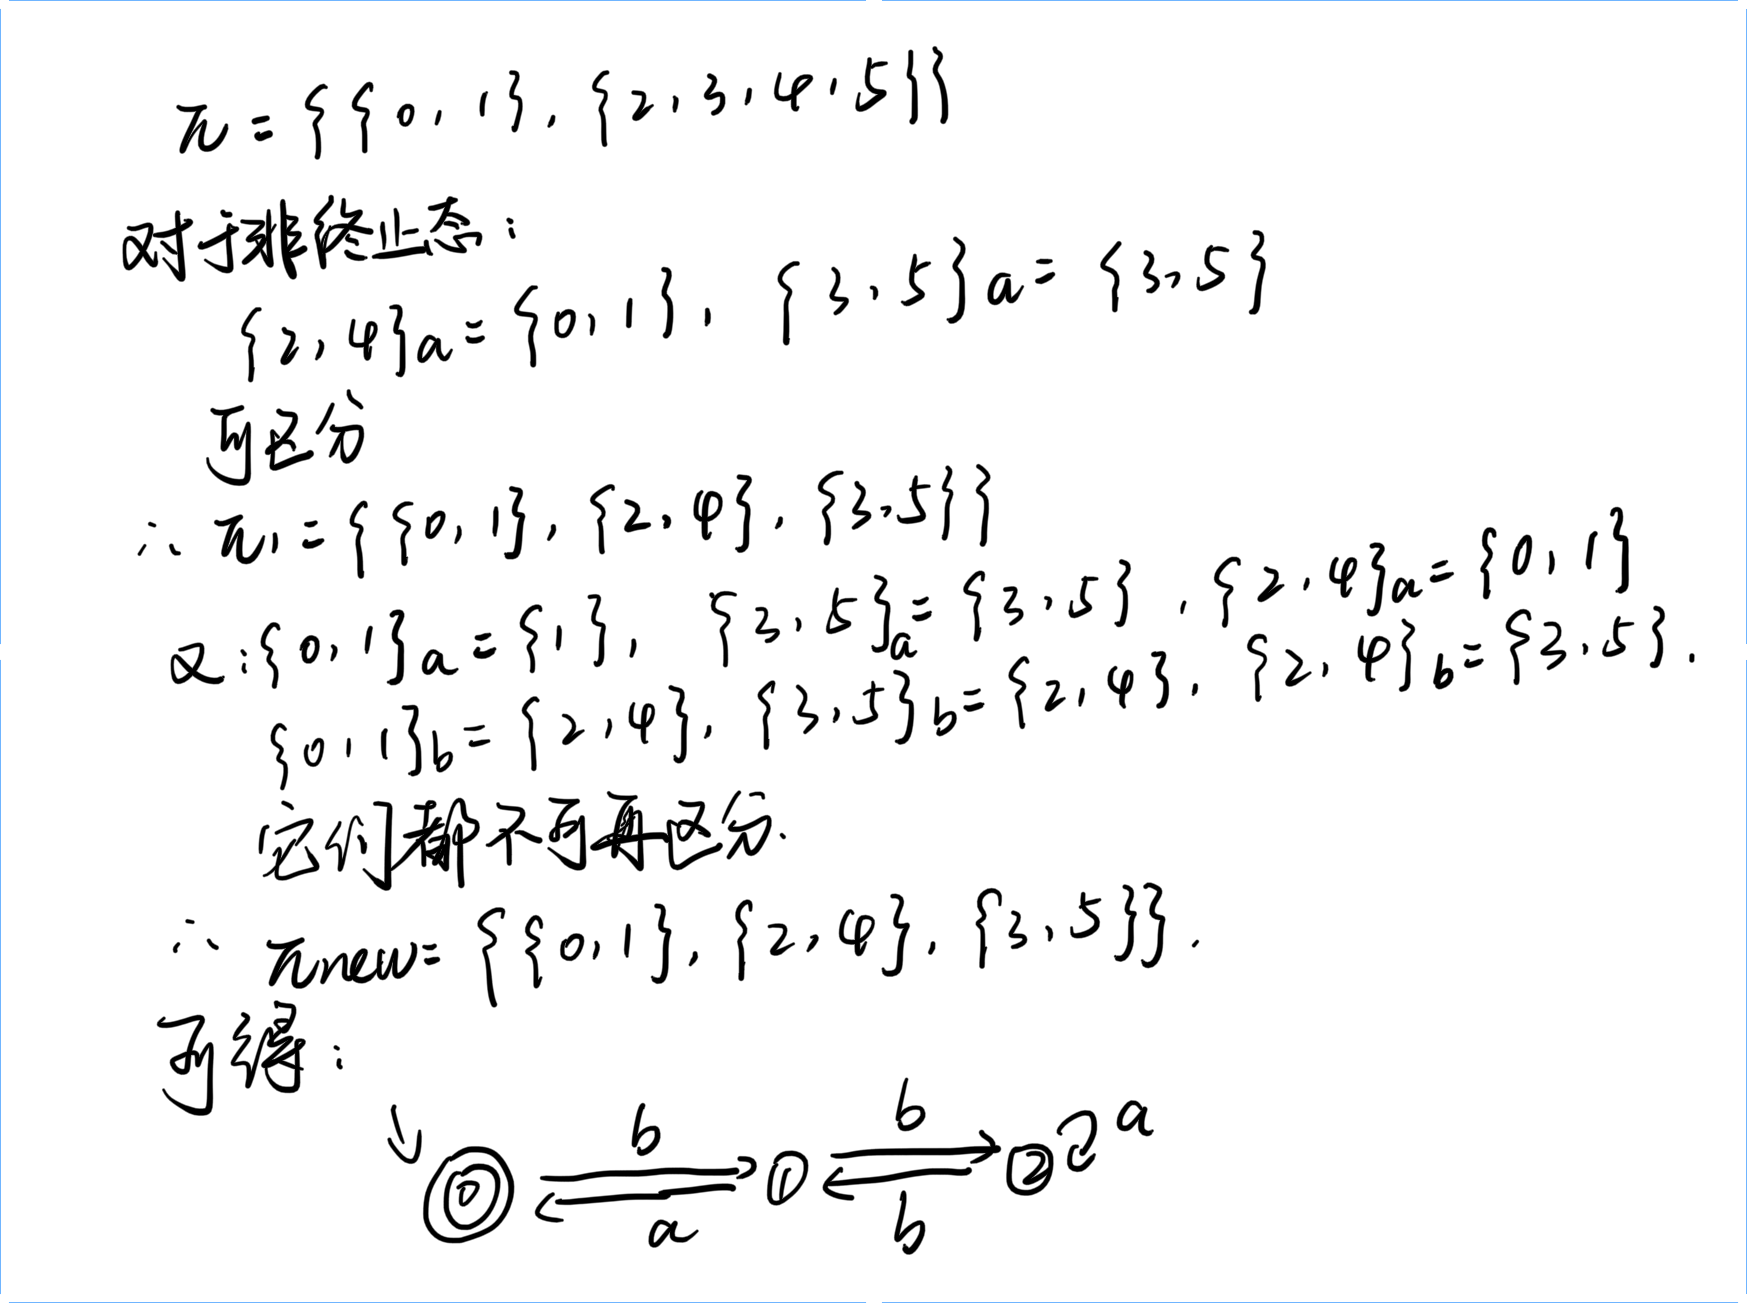 π = {{0, 1}, {2, 3, 4, 5}}
对于非终止态:
{2, 4}a = {0, 1}, {3, 5}a = {3, 5}
可区分
∴ π₁ = {{0, 1}, {2, 4}, {3, 5}}
又:{0, 1}a = {1}, {3, 5}a = {3, 5}, {2, 4}a = {0, 1}
{0, 1}b = {2, 4}, {3, 5}b = {2, 4}, {2, 4}b = {3, 5}.
它们都不可再区分.
∴ πnew = {{0, 1}, {2, 4}, {3, 5}}.
可得:
b b a
0 1 2
a b